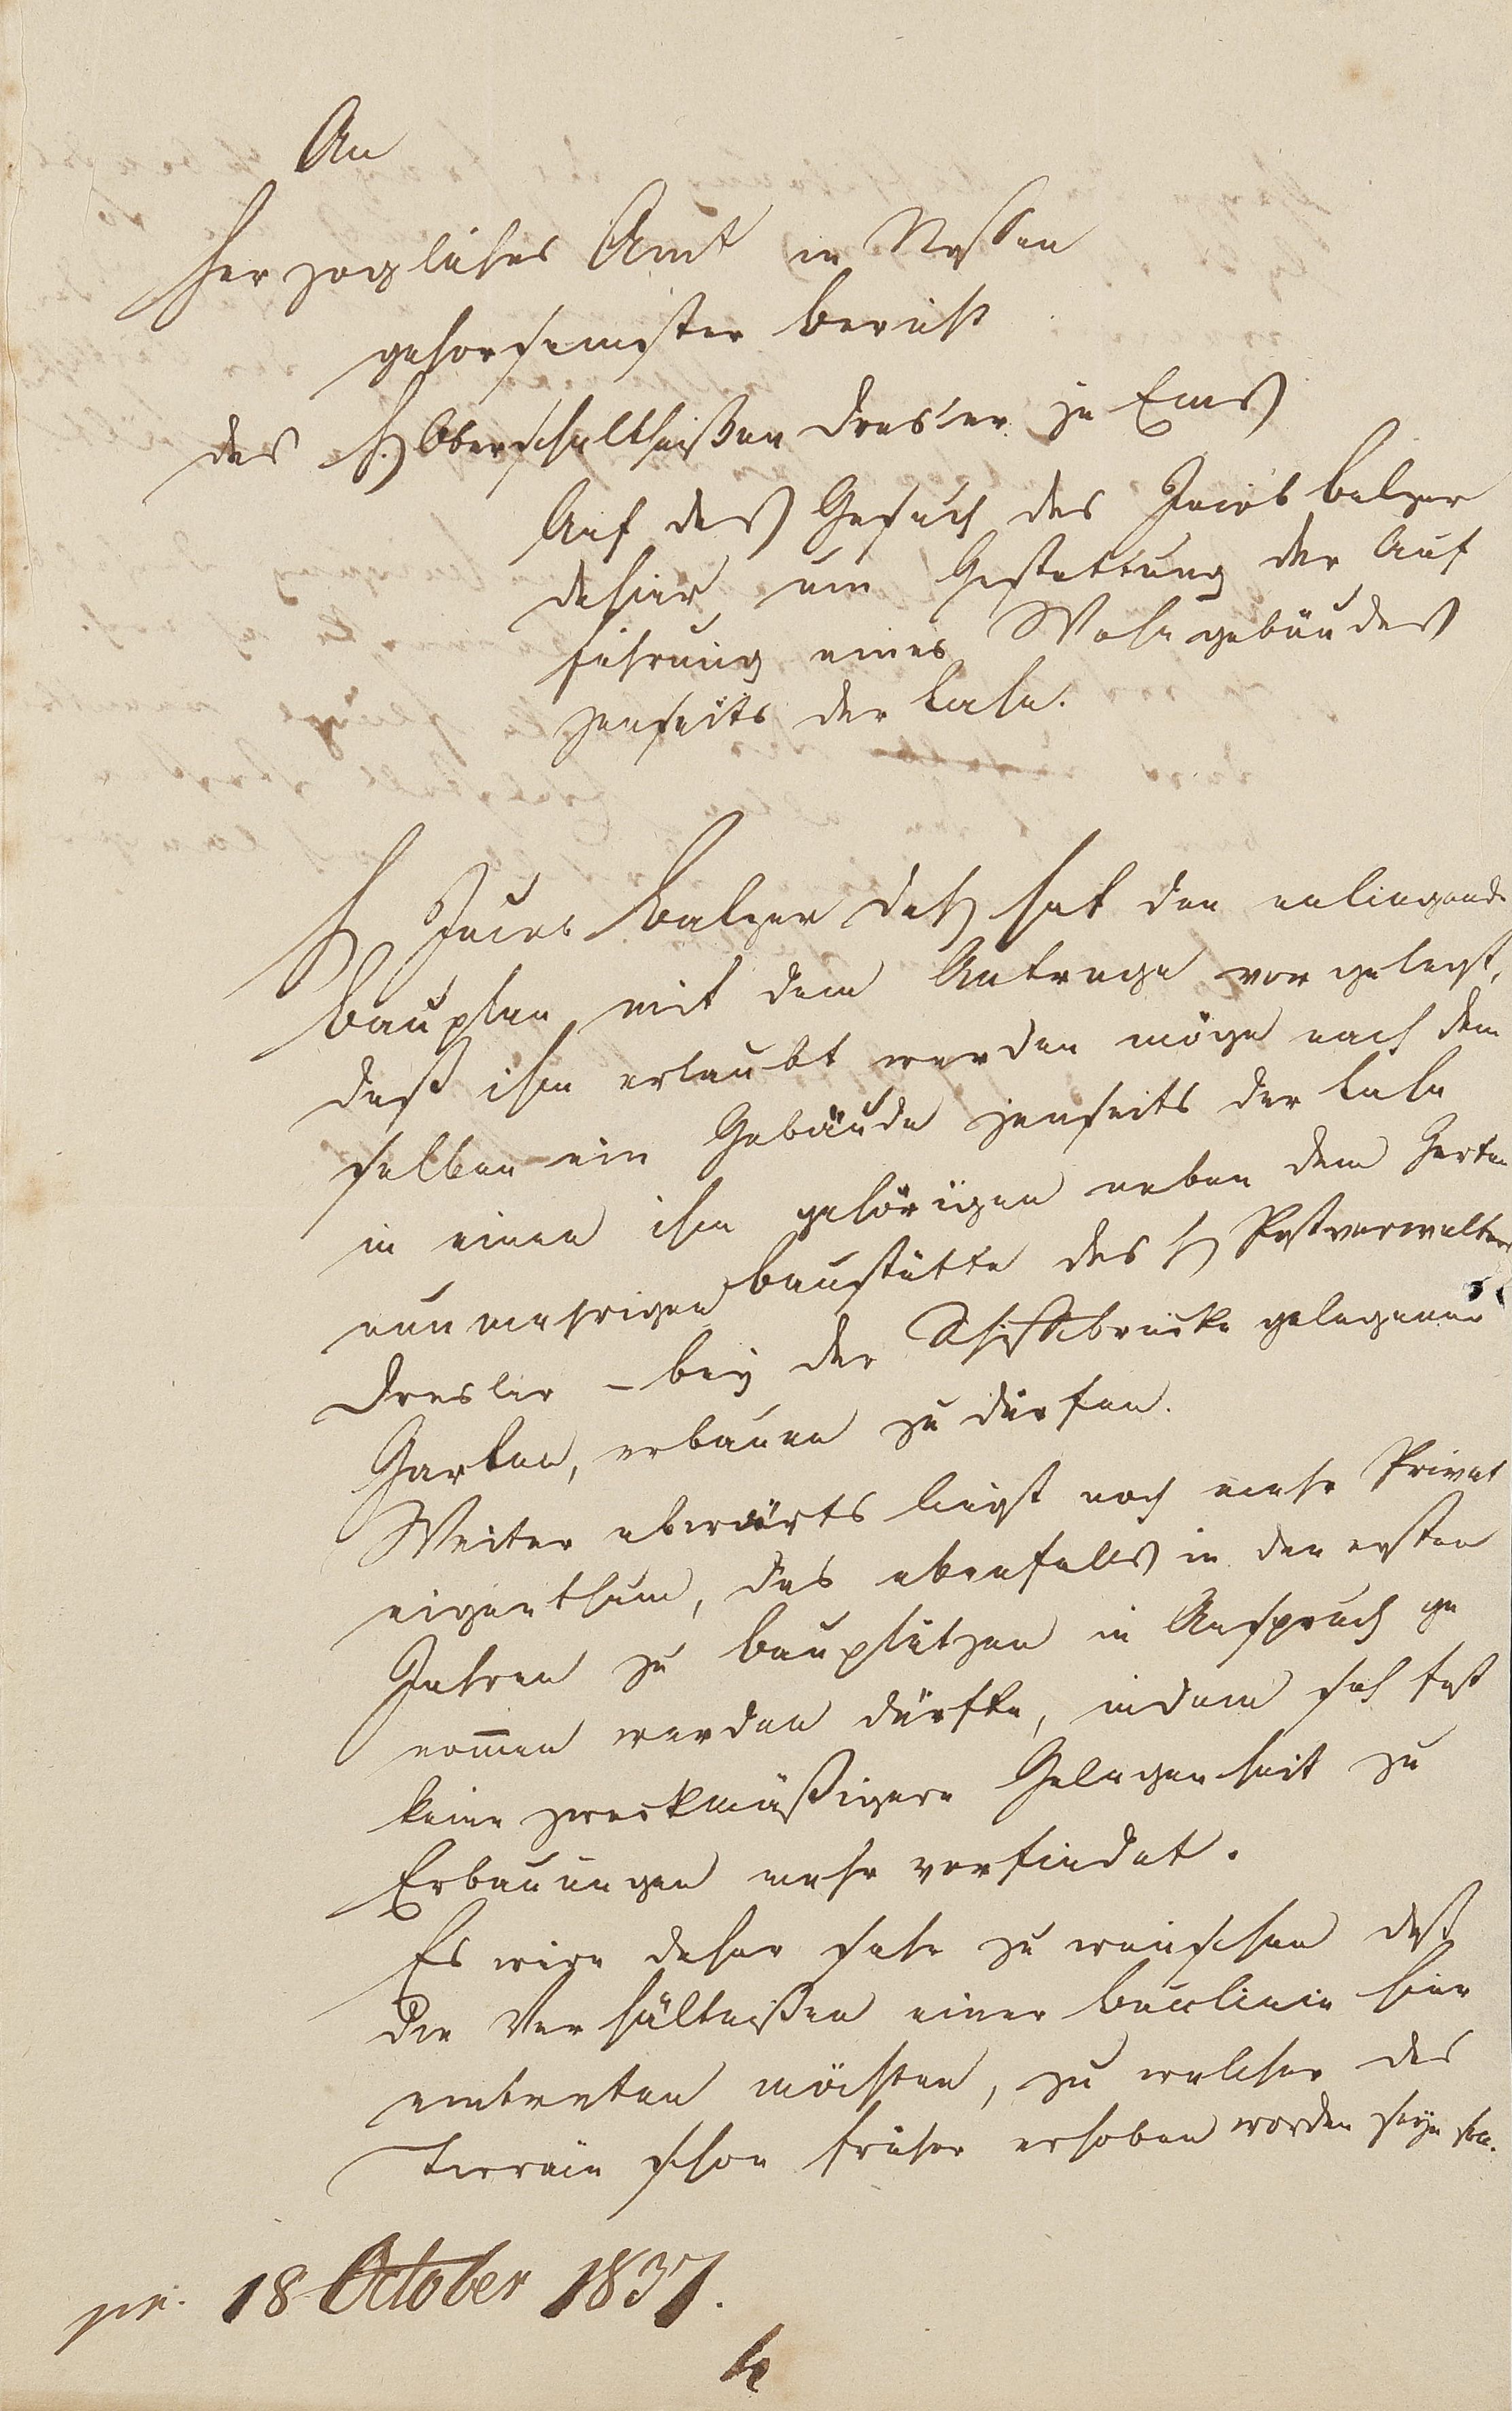 An
Herzogliches Amt in Nassau
gehorsamster Bericht
des H. Oberschultheißen Dresler zu Ems
Auf das Gesuch des Jacob Balzer
dahier um Gestattung der Auf
führung eines Wohngebäudes
jenseits der Lahn.
H Jacob Balzer dah hat den anliegende
Bauplan mit dem Antrage vorgelegt,
daß ihm erlaubt werden möge nach dem
selben ein Gebäude jenseits der Lahn
in einen ihm gehörigen neben dem Garten
nunmehrigen Baustätte des H Postverwalters
Dresler – bey der Schiffbrücke gelegenen
Garten, erbauen zu dürfen.
Weiter abwärts liegt noch mehr Privat
eigenthum, das ebenfalls in den ersten
Jahren zu Bauplätzen in Anspruch ge
nom̄en werden dürfte, indem sich fast
keine zweckmäßigere Gelegenheit zu
Erbauungen mehr vorfindet.
Es wäre daher sehr zu wünschen daß
die Verhältnißen einer Baulinie hier
eintreten möchten, zu welcher das
Terrain schon früher erhoben worden seyn soll.
pr. 18 October 1837.